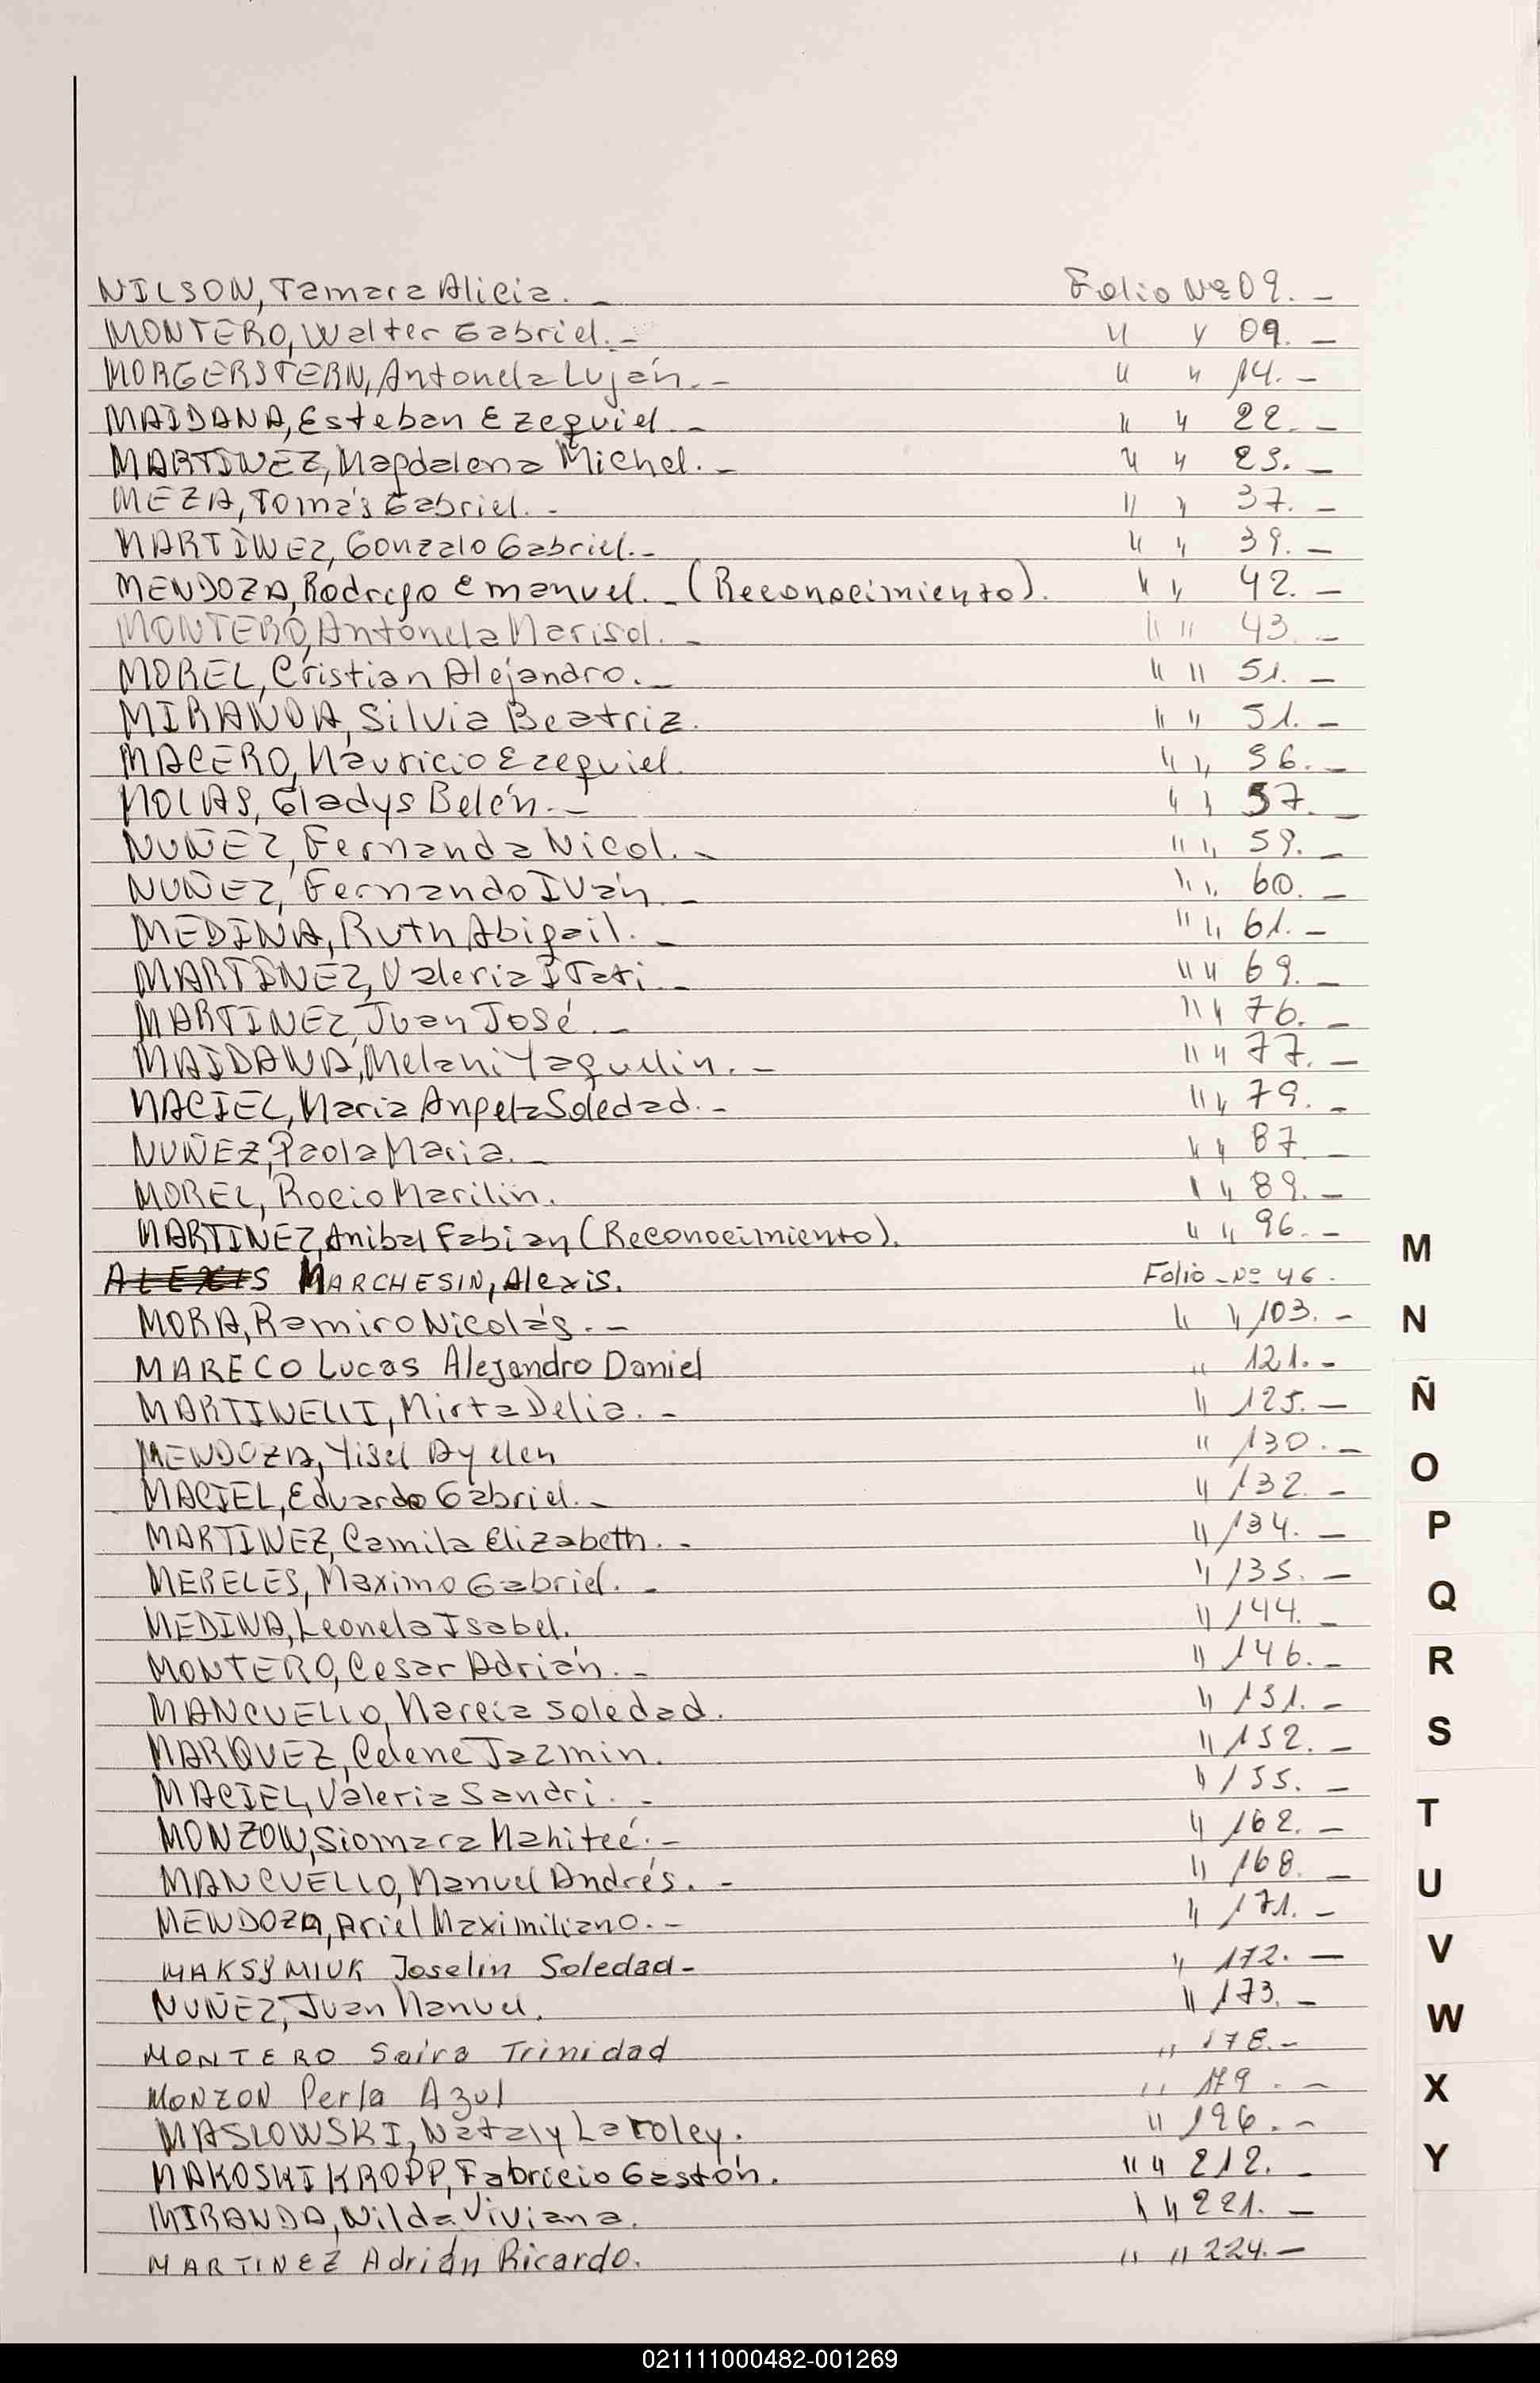 NILSON, Tamara Alicia. - Folio Nº 09. -
MONTERO, Walter Gabriel. - " " 09. -
MORGERSTERN, Antonela Luján. - " " 14. -
MAIDANA, Esteban Ezequiel. - " " 22. -
MARTINEZ, Magdalena Michel. - " " 23. -
MEZA, Tomás Gabriel. - " " 37. -
MARTINEZ, Gonzalo Gabriel. - " " 39. -
MENDOZA, Rodrigo Emanuel. - (Reconocimiento). " " 42. -
MONTERO, Antonela Marisol. - " " 43. -
MOREL, Cristian Alejandro. - " " 51. -
MIRANDA, Silvia Beatriz. " " 51. -
MACERO, Mauricio Ezequiel. " " 56. -
MOLAS, Gladys Belén. - " " 57. -
NUÑEZ, Fernanda Nicol. - " " 59. -
NUÑEZ, Fernando Iván. - " " 60. -
MEDINA, Ruth Abigail. - " " 61. -
MARTINEZ, Valeria ITati. - " " 69. -
MARTINEZ, Juan José. - " " 76. -
MAIDANA, Melani Yaquelin. - " " 77. -
MACIEL, Maria Angela Soledad. - " " 79. -
NUÑEZ, Paola Maria. - " " 87. -
MOREL, Rocio Marilin. " " 89. -
MARTINEZ, Anibal Fabian (Reconocimiento). " " 96. -
ALEXIS MARCHESIN, Alexis. Folio - Nº 46.
MORA, Ramiro Nicolás. - " " 103. -
MARECO Lucas Alejandro Daniel " 121. -
MARTINELLI, Mirta Delia. - " 125. -
MENDOZA, Yisel Ayelen " 130. -
MACIEL, Eduardo Gabriel. - " 132. -
MARTINEZ, Camila Elizabeth. - " 134. -
MERELES, Maximo Gabriel. - " 135. -
MEDINA, Leonela Isabel. " 144. -
MONTERO, Cesar Adrián. - " 146. -
MANCUELLO, Narcia Soledad. " 151. -
MARQUEZ, Celene Jazmin. " 152. -
MACIEL, Valeria Sandri. - " 155. -
MONZON, Siomara Mahiteé. - " 162. -
MANCUELLO, Manuel Andrés. - " 168. -
MENDOZA, Ariel Maximiliano. - " 171. -
MAKSYMIUK Joselin Soledad - " 172. -
NUÑEZ, Juan Manuel. " 173. -
MONTERO Saira Trinidad " 178. -
MONZON Perla Azul " 179. -
MASLOWSKI, Nataly Laroley. " 196. -
MAKOSKI KROPP, Fabricio Gastón. " " 212. -
MIRANDA, Nilda Viviana. " " 221. -
MARTINEZ Adrián Ricardo. " " 224. -
M
N
Ñ
O
P
Q
R
S
T
U
V
W
X
Y
021111000482-001269